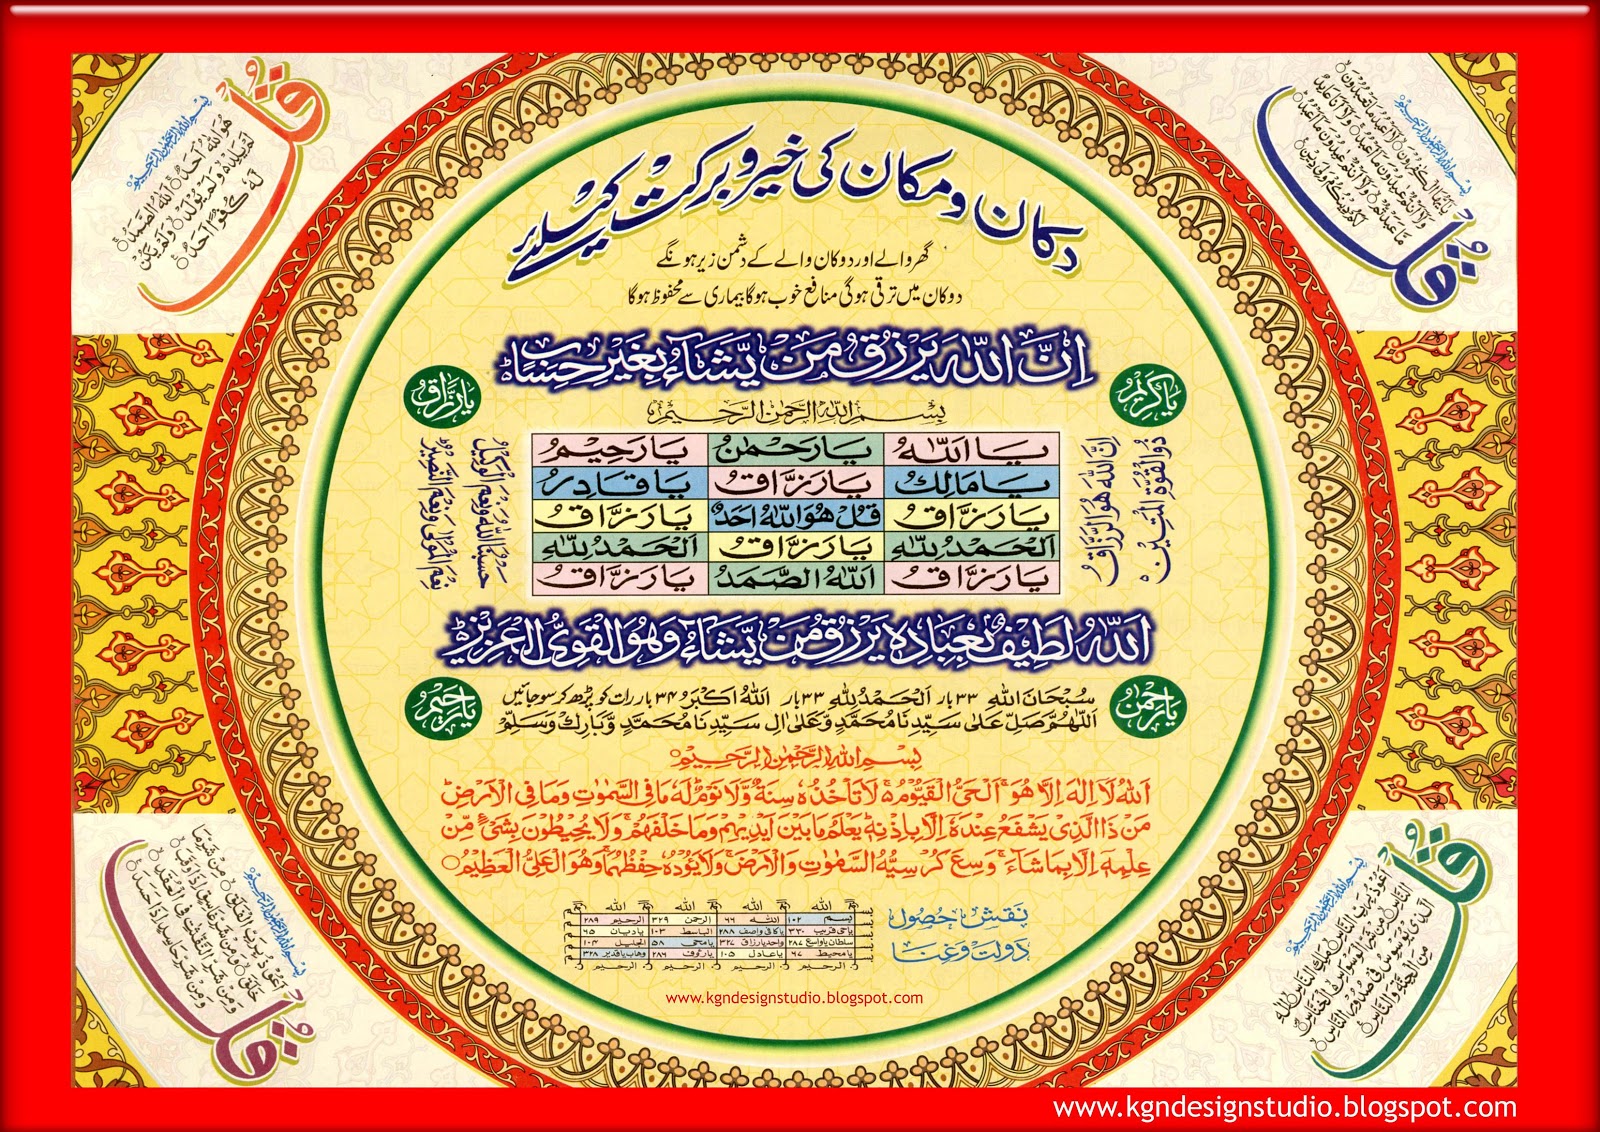 دکان و مکان کی خیر و برکت کیلئے
گھر والے اور دوکان والے کے دشمن زیر ہونگے
دوکان میں ترقی ہوگی منافع خوب ہوگا بیماری سے محفوظ ہوگا
اِنَّ اللهَ يَرْزُقُ مَنْ يَّشَآءُ بِغَيْرِ حِسَابٍ
يا كريم
يا رزاق
بِسْمِ اللهِ الرَّحْمٰنِ الرَّحِيْمِ
يَا اَللّٰهُ يَا رَحْمٰنُ يَا رَحِيْمُ
يَا مَالِكُ يَا رَزَّاقُ يَا قَادِرُ
يَا رَزَّاقُ قُلْ هُوَ اللهُ اَحَدٌ يَا رَزَّاقُ
اَلْحَمْدُ لِلّٰهِ يَا رَزَّاقُ اَلْحَمْدُ لِلّٰهِ
يَا رَزَّاقُ اَللهُ الصَّمَدُ يَا رَزَّاقُ
اِنَّ اللهَ هُوَ الرَّزَّاقُ
ذُو الْقُوَّةِ الْمَتِيْنُ
حَسْبُنَا اللهُ وَنِعْمَ الْوَكِيْلُ
نِعْمَ الْمَوْلٰى وَنِعْمَ النَّصِيْرُ
اَللهُ لَطِيْفٌ بِعِبَادِهٖ يَرْزُقُ مَنْ يَّشَآءُ وَهُوَ الْقَوِىُّ الْعَزِيْزُ
يا رحمن
يا رحيم
سُبْحَانَ اللهِ ۳۳ بار اَلْحَمْدُ لِلّٰهِ ۳۳ بار اَللهُ اَكْبَرُ ۳۴ بار رات کو پڑھ کر سو جائیں
اَللّٰهُمَّ صَلِّ عَلٰى سَيِّدِنَا مُحَمَّدٍ وَّعَلٰى اٰلِ سَيِّدِنَا مُحَمَّدٍ وَّبَارِكْ وَسَلِّمْ
بِسْمِ اللهِ الرَّحْمٰنِ الرَّحِيْمِ
اَللهُ لَا اِلٰهَ اِلَّا هُوَ اَلْحَيُّ الْقَيُّوْمُ لَا تَاْخُذُهٗ سِنَةٌ وَّلَا نَوْمٌ لَهٗ مَا فِى السَّمٰوٰتِ وَمَا فِى الْاَرْضِ
مَنْ ذَا الَّذِىْ يَشْفَعُ عِنْدَهٗ اِلَّا بِاِذْنِهٖ يَعْلَمُ مَا بَيْنَ اَيْدِيْهِمْ وَمَا خَلْفَهُمْ وَلَا يُحِيْطُوْنَ بِشَىْءٍ مِّنْ
عِلْمِهٖ اِلَّا بِمَا شَآءَ وَسِعَ كُرْسِيُّهُ السَّمٰوٰتِ وَالْاَرْضَ وَلَا يَئُوْدُهٗ حِفْظُهُمَا وَهُوَ الْعَلِىُّ الْعَظِيْمُ
نقش حصول
دولت و غنا
الله الله الله الله
بسم ۱۰۲ الله ۶۶ الرحمن ۳۲۹ الرحيم ۲۸۹
الرحيم الرحيم الرحيم الرحيم
www.kgndesignstudio.blogspot.com
بِسْمِ اللهِ الرَّحْمٰنِ الرَّحِيْمِ
قُلْ
هُوَ اللهُ اَحَدٌ اَللهُ الصَّمَدُ
لَمْ يَلِدْ وَلَمْ يُوْلَدْ وَلَمْ يَكُنْ
لَّهٗ كُفُوًا اَحَدٌ
بِسْمِ اللهِ الرَّحْمٰنِ الرَّحِيْمِ
قُلْ
يٰاَيُّهَا الْكٰفِرُوْنَ لَا اَعْبُدُ مَا تَعْبُدُوْنَ
وَلَا اَنْتُمْ عٰبِدُوْنَ مَا اَعْبُدُ وَلَا اَنَا عَابِدٌ
مَّا عَبَدْتُّمْ وَلَا اَنْتُمْ عٰبِدُوْنَ مَا اَعْبُدُ
لَكُمْ دِيْنُكُمْ وَلِىَ دِيْنِ
بِسْمِ اللهِ الرَّحْمٰنِ الرَّحِيْمِ
قُلْ
اَعُوْذُ بِرَبِّ الْفَلَقِ مِنْ شَرِّ مَا
خَلَقَ وَمِنْ شَرِّ غَاسِقٍ اِذَا وَقَبَ
وَمِنْ شَرِّ النَّفّٰثٰتِ فِى الْعُقَدِ
وَمِنْ شَرِّ حَاسِدٍ اِذَا حَسَدَ
بِسْمِ اللهِ الرَّحْمٰنِ الرَّحِيْمِ
قُلْ
اَعُوْذُ بِرَبِّ النَّاسِ مَلِكِ النَّاسِ اِلٰهِ
النَّاسِ مِنْ شَرِّ الْوَسْوَاسِ الْخَنَّاسِ
الَّذِىْ يُوَسْوِسُ فِىْ صُدُوْرِ النَّاسِ
مِنَ الْجِنَّةِ وَالنَّاسِ
www.kgndesignstudio.blogspot.com